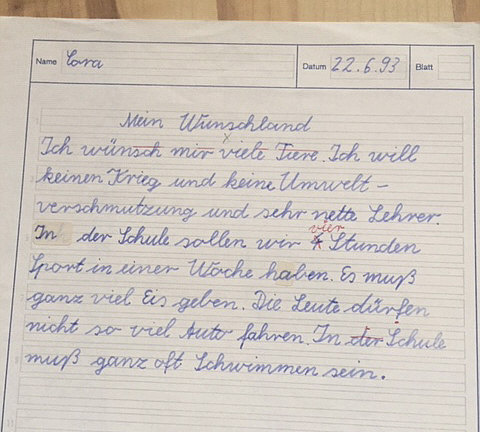 Name Cora Datum 22.6.93 Blatt
Mein Wunschland
Ich wünsch mir viele Tiere. Ich will
keinen Krieg und keine Umwelt-
verschmutzung und sehr nette Lehrer.
vier
In der Schule sollen wir 4 Stunden
Sport in einer Woche haben. Es muß
ganz viel Eis geben. Die Leute dürfen
nicht so viel Auto fahren. In der Schule
muß ganz oft Schwimmen sein.